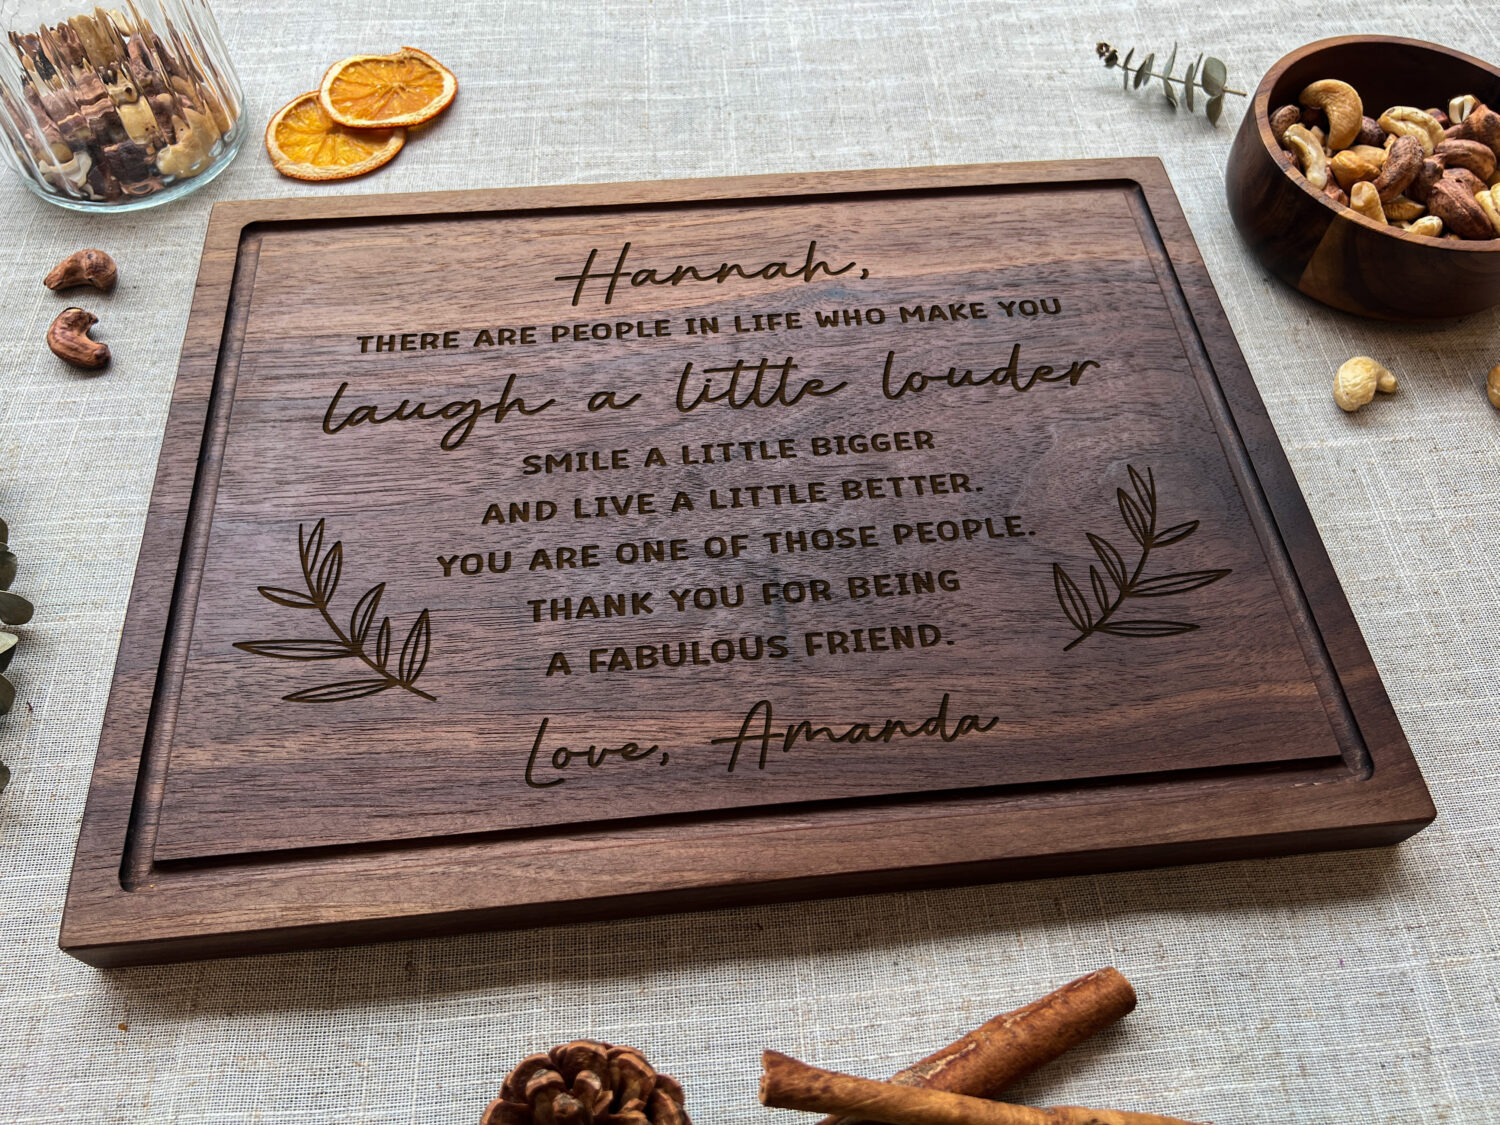 Hannah,
THERE ARE PEOPLE IN LIFE WHO MAKE YOU
laugh a little louder
SMILE A LITTLE BIGGER
AND LIVE A LITTLE BETTER.
YOU ARE ONE OF THOSE PEOPLE.
THANK YOU FOR BEING
A FABULOUS FRIEND.
Love, Amanda